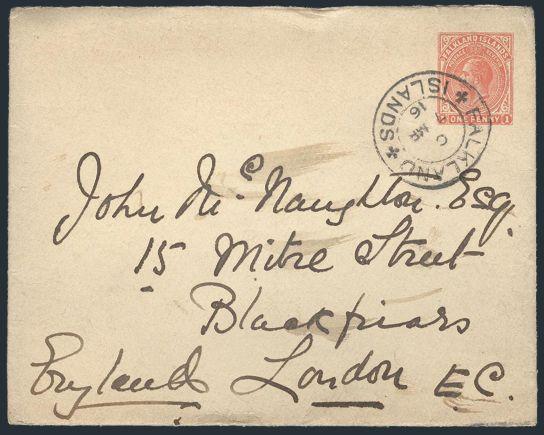 FALKLAND ISLANDS
ONE PENNY 1
FALKLAND ISLANDS
C
MR
16
John McNaughton. Esq
15 Mitre Street
Blackfriars
England London E.C.